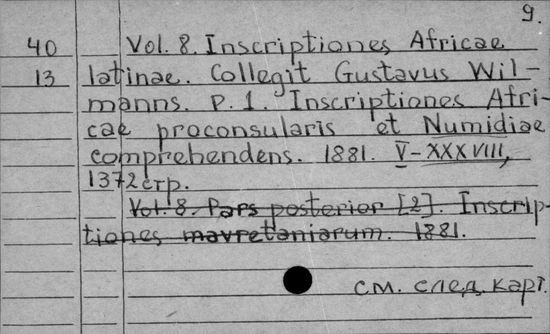 9.
40 Vol. 8. Inscriptiones Africae
13 latinae. Collegit Gustavus Wil-
manns. P. 1. Inscriptiones Afri-
cae proconsularis et Numidiae
comprehendens. 1881. V-XXXVIII,
1372 стр.
Vol. 8. Pars posterior [2]. Inscrip-
tiones mavretaniarum. 1881.
см. след. карт.